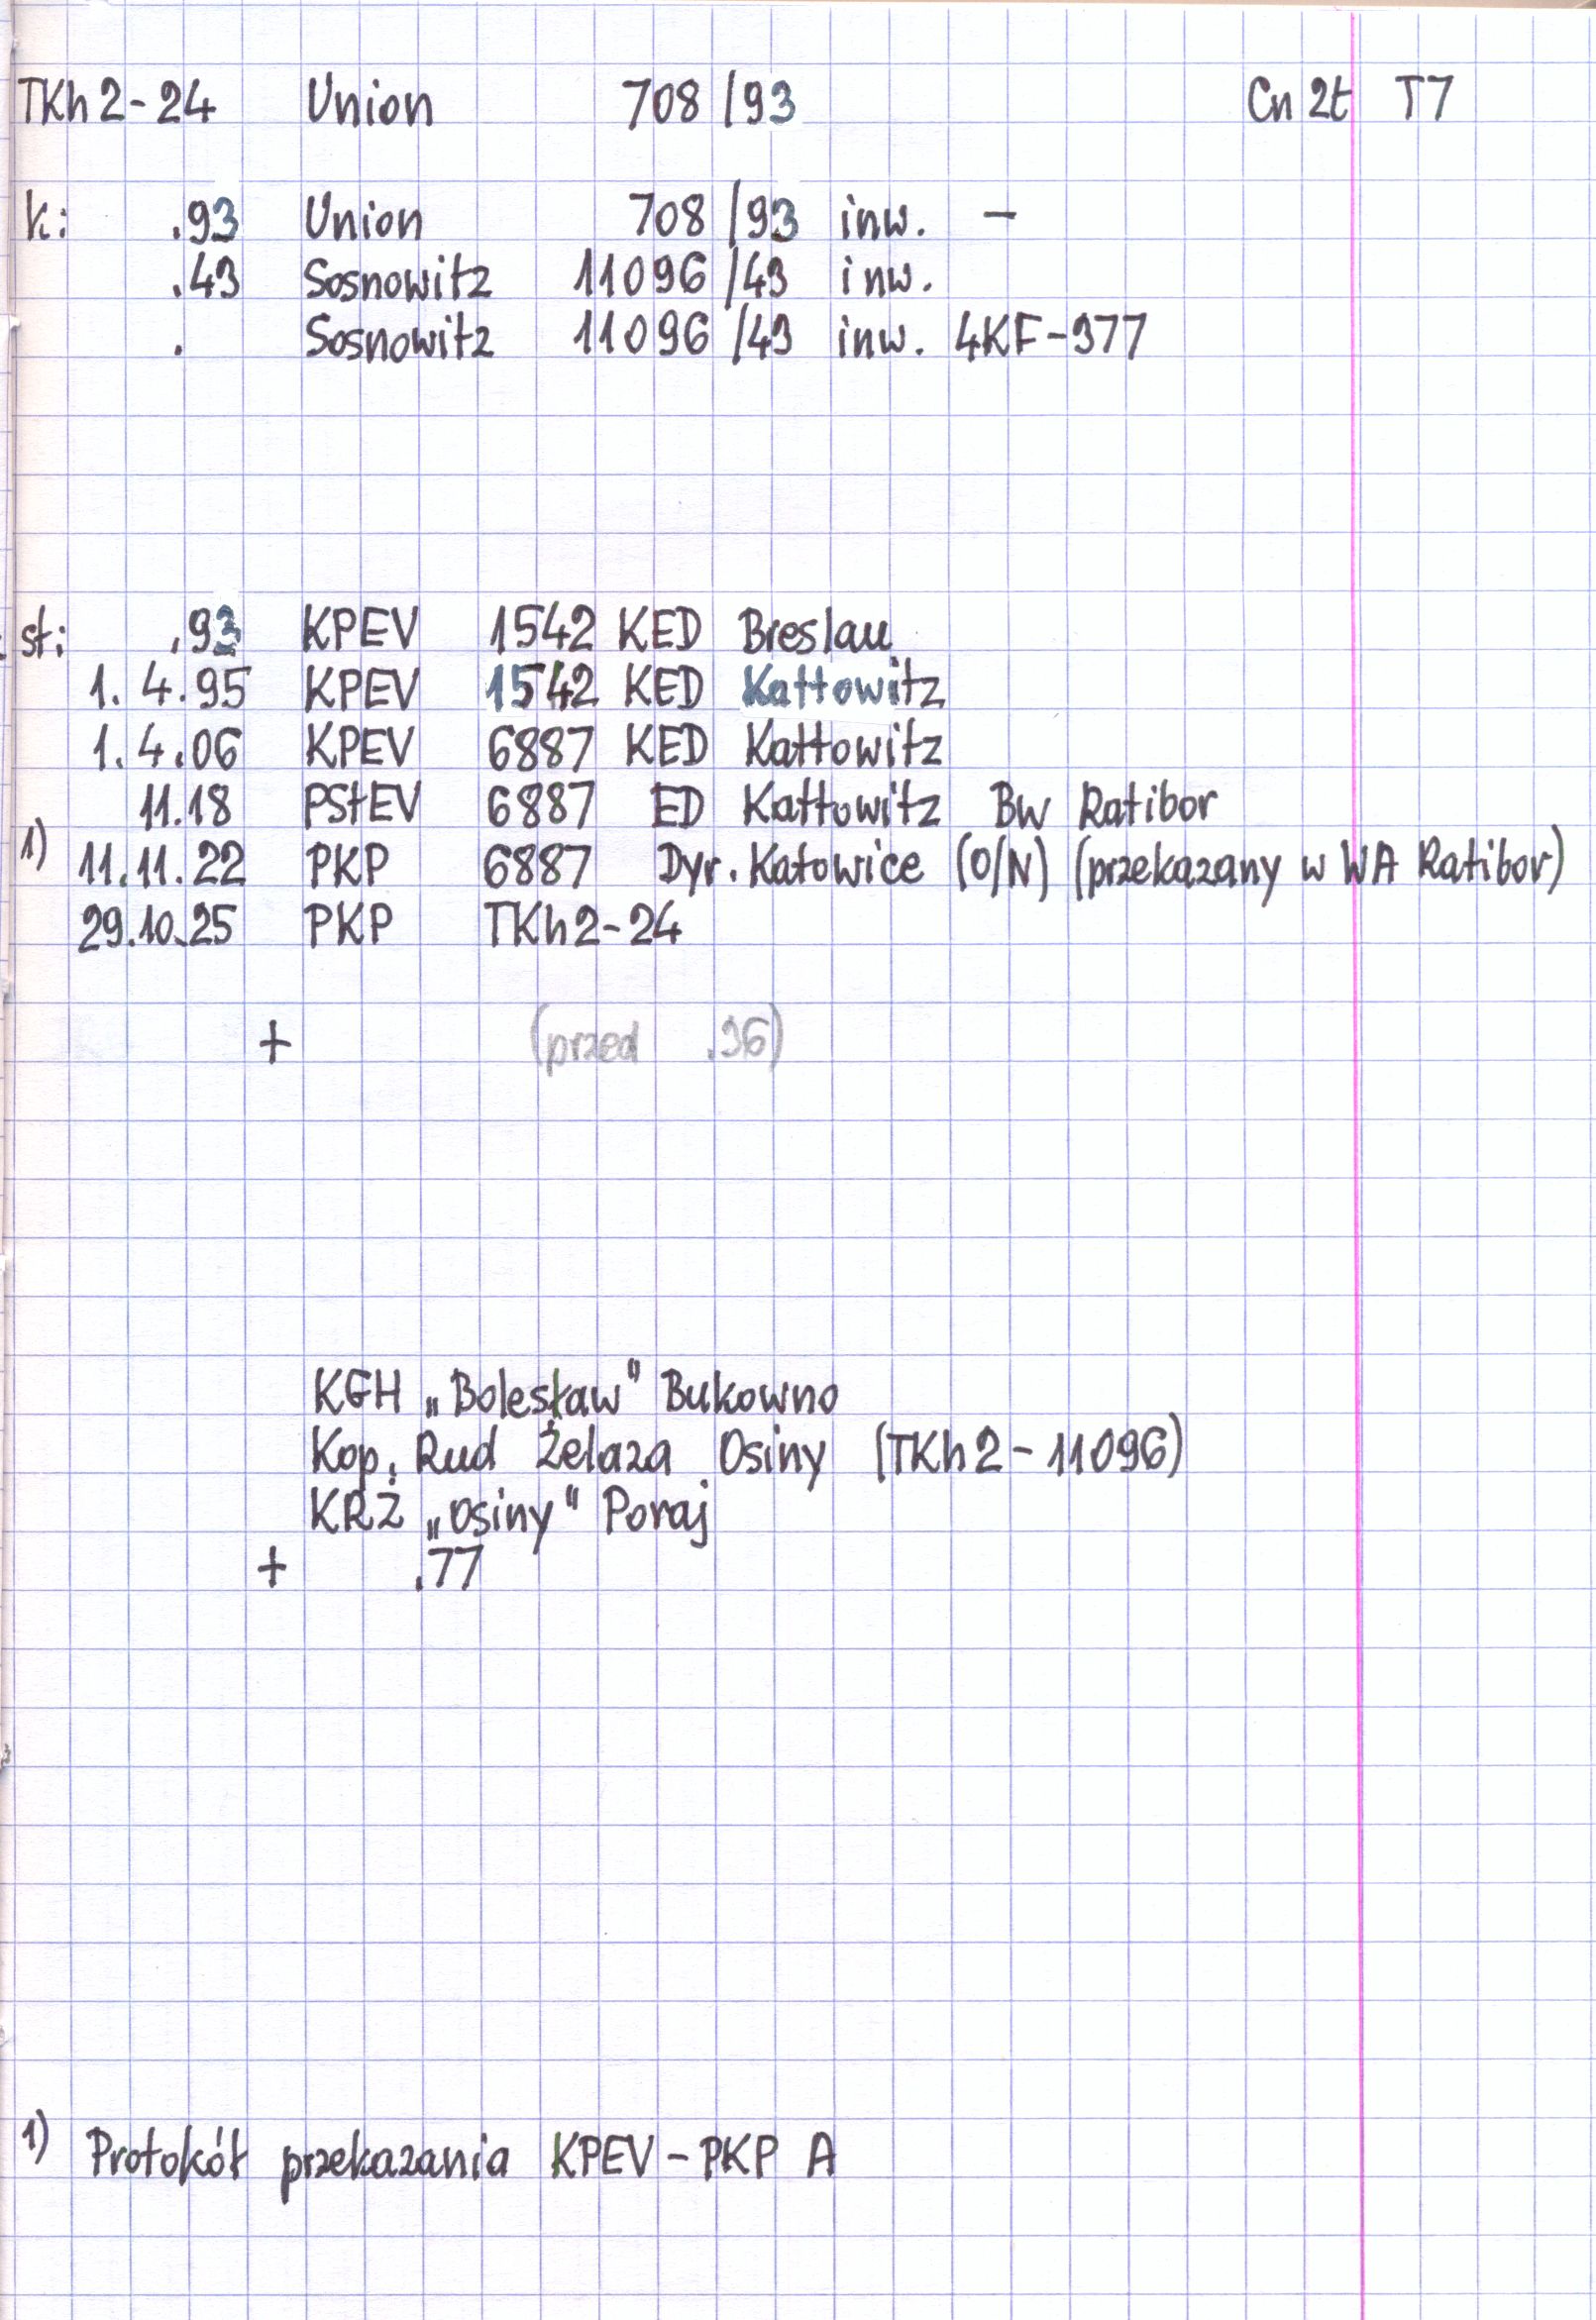 TKh2-24 Union 708/93 Cn2t T7
k: .93 Union 708/93 inw. -
.43 Sosnowitz 11096/43 inw.
. Sosnowitz 11096/43 inw. 4KF-377
st: .93 KPEV 1542 KED Breslau
1.4.95 KPEV 1542 KED Kattowitz
1.4.06 KPEV 6887 KED Kattowitz
11.18 PStEV 6887 ED Kattowitz Bw Ratibor
1) 11.11.22 PKP 6887 Dyr. Katowice (O/N) (przekazany w WA Ratibor)
29.10.25 PKP TKh2-24
+ (przed .36)
KGH „Bolesław" Bukowno
Kop. Rud Żelaza Osiny (TKh2-11096)
KRŻ „Osiny" Poraj
+ .77
1) Protokół przekazania KPEV-PKP A